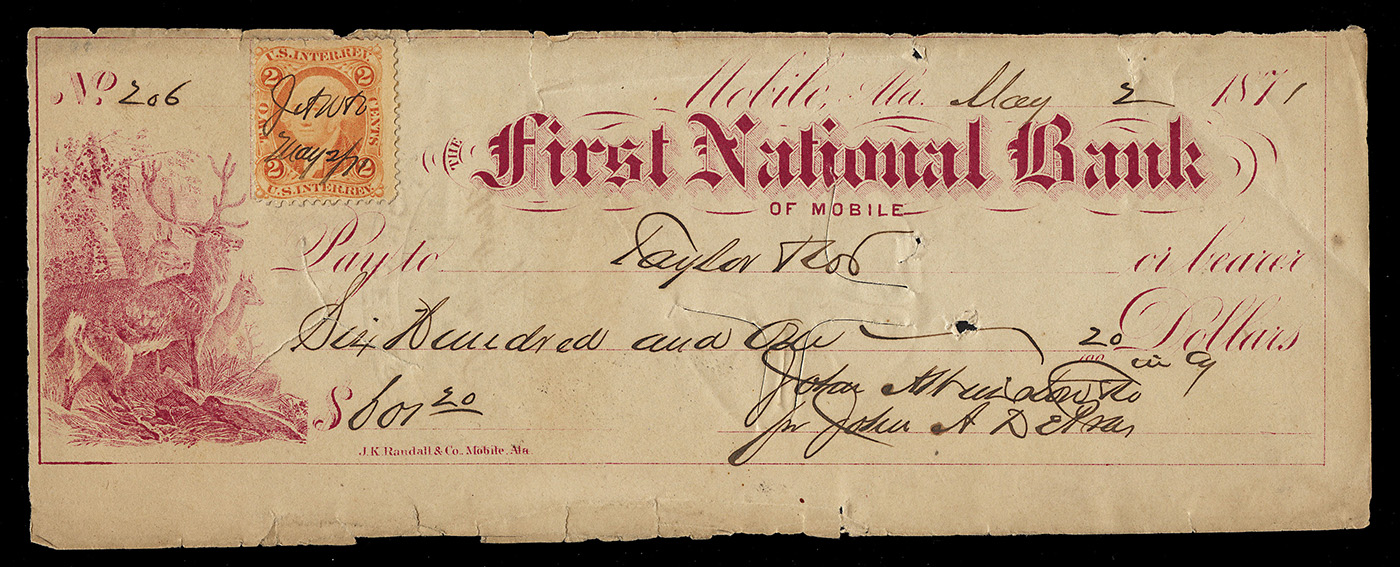 No. 206
U.S. INTER. REV.
2 2
TWO CENTS
May 2/71
2 2
U.S. INTER. REV.
Mobile, Ala. May 2 1871
THE First National Bank
OF MOBILE
Pay to Taylor or bearer
Six Hundred and One 20/100 Dollars
in Cy
$601 20
John
pr John A
J.K. Randall & Co., Mobile, Ala.